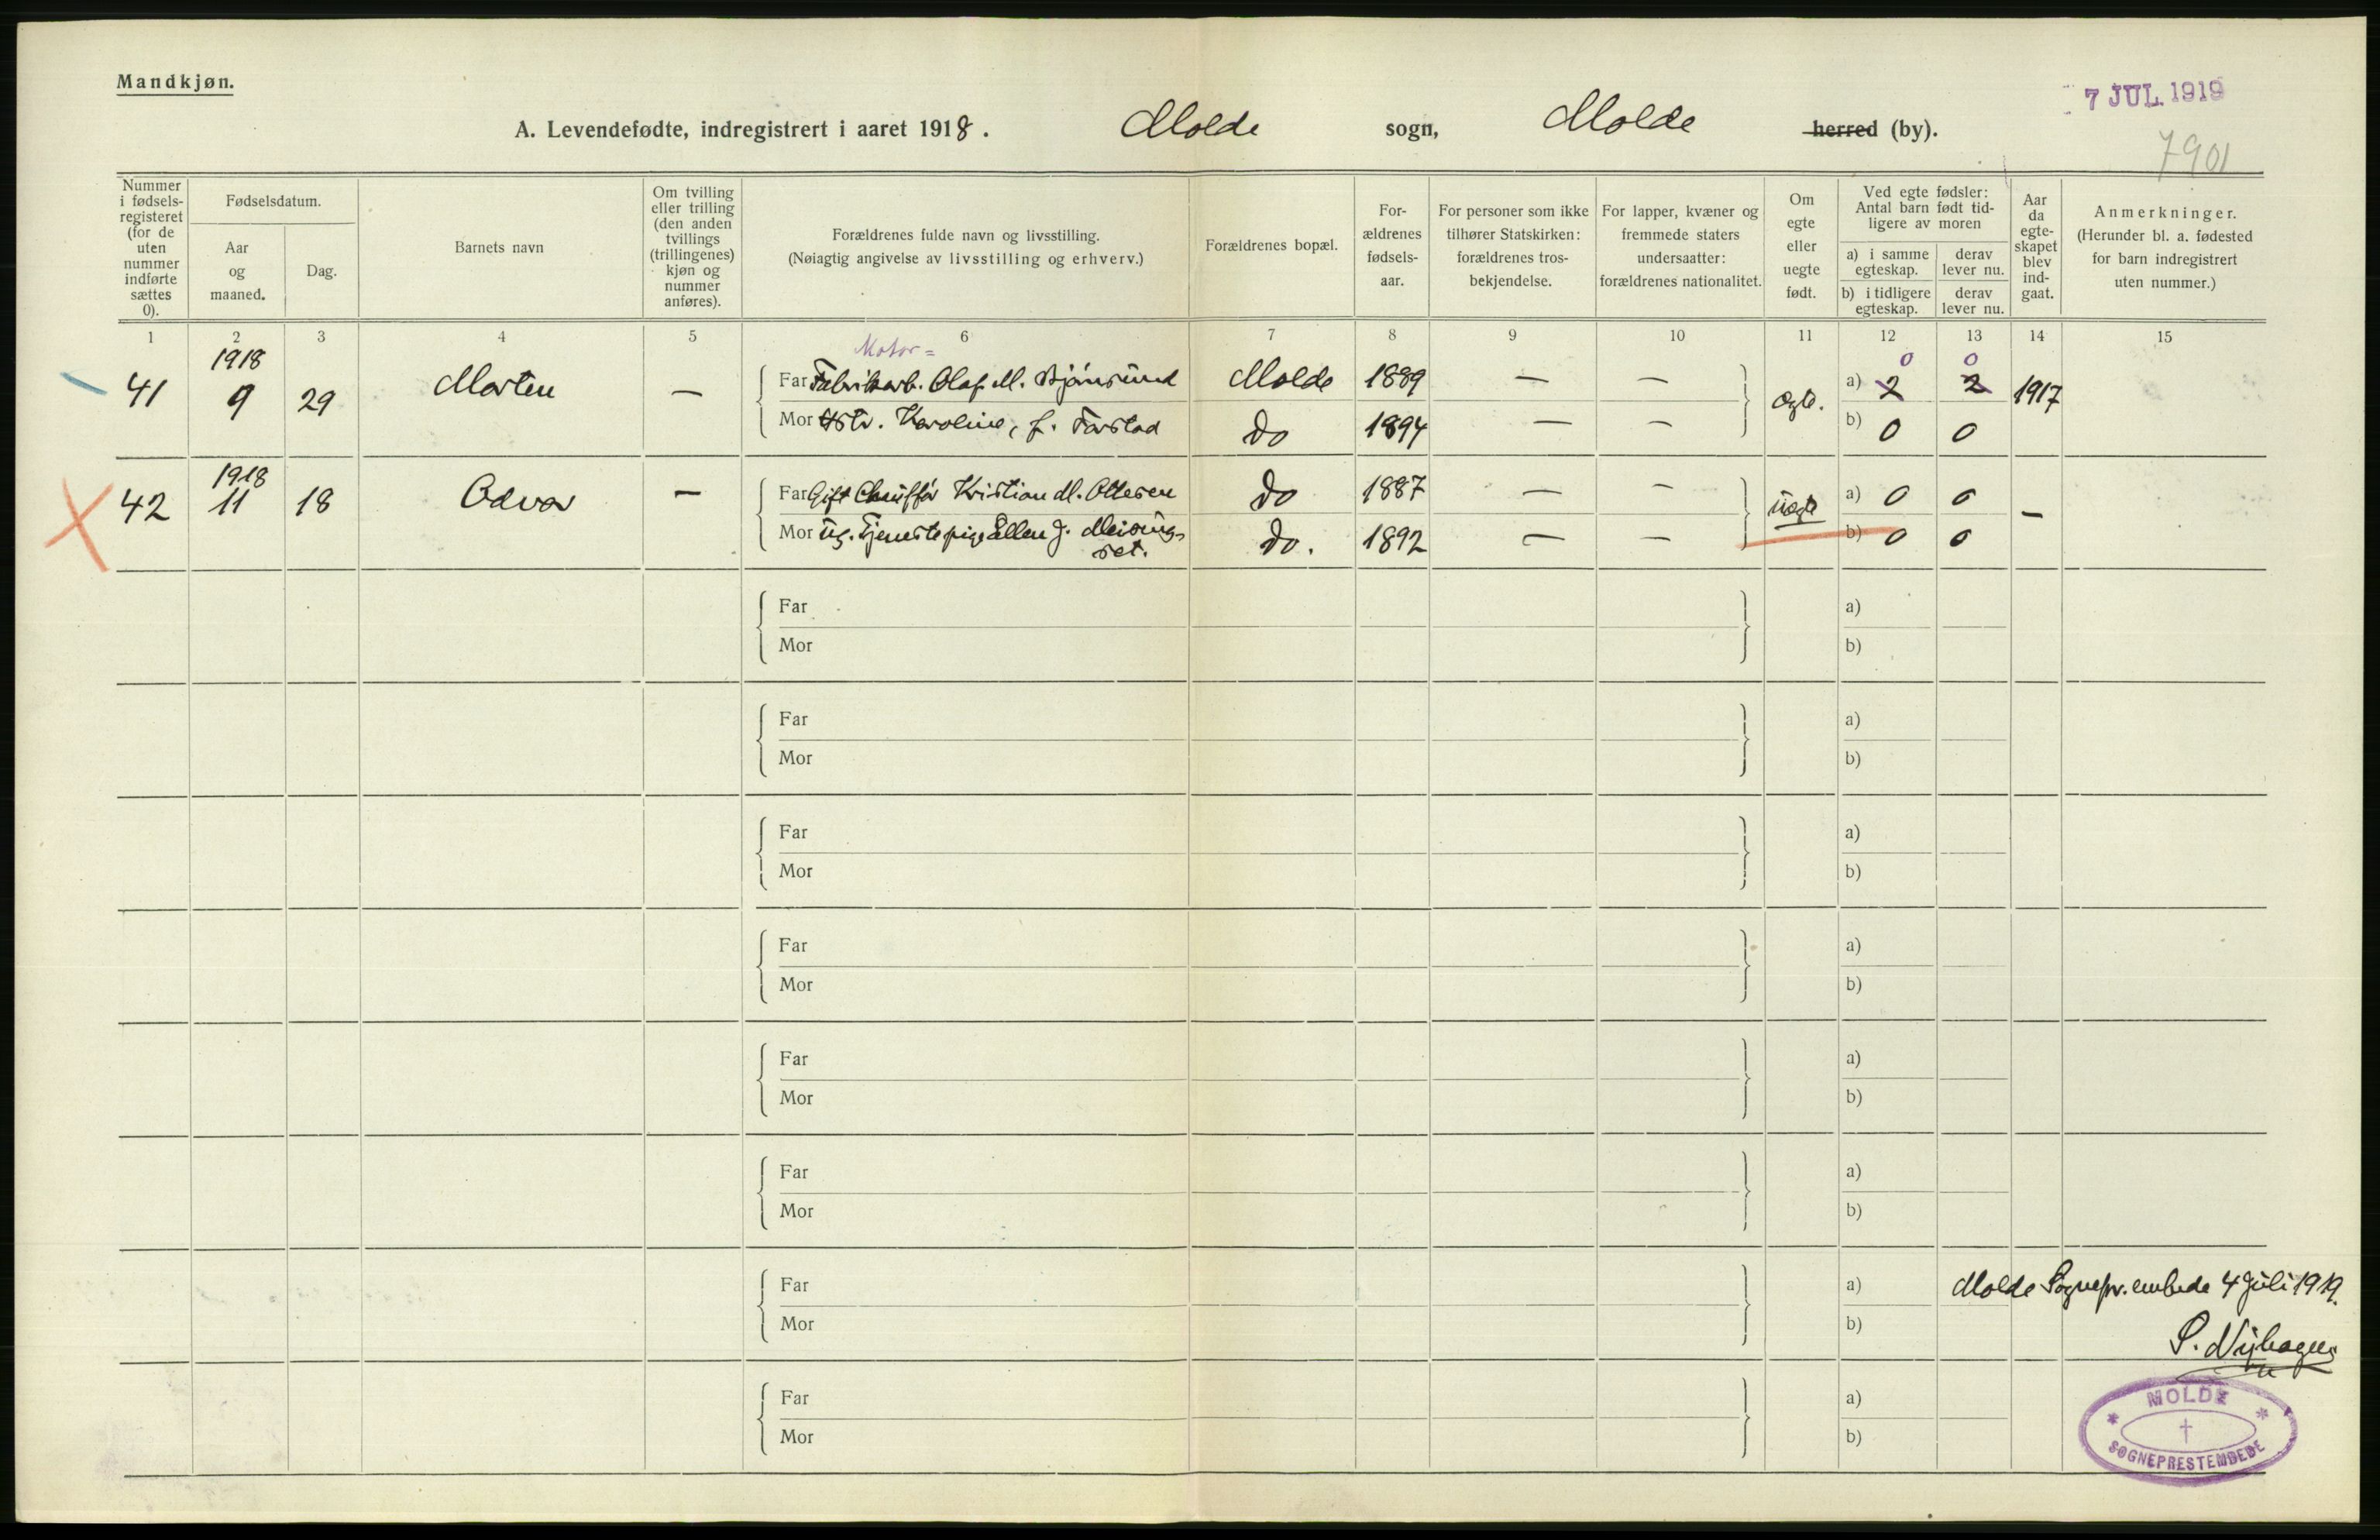 Mandkjøn.
7 JUL. 1919
A. Levendefødte, indregistrert i aaret 1918. Molde sogn, Molde herred (by).
7901
Nummer i fødsels-registeret (for de uten nummer indførte sættes 0).
Fødselsdatum.
Aar og maaned.
Dag.
Barnets navn
Om tvilling eller trilling (den anden tvillings (trillingenes) kjøn og nummer anføres).
Forældrenes fulde navn og livsstilling.
(Nøiagtig angivelse av livsstilling og erhverv.)
Forældrenes bopæl.
For-ældrenes fødsels-aar.
For personer som ikke tilhører Statskirken: forældrenes tros-bekjendelse.
For lapper, kvæner og fremmede staters undersaatter: forældrenes nationalitet.
Om egte eller uegte født.
Ved egte fødsler: Antal barn født tid-ligere av moren
a) i samme egteskap.
derav lever nu.
b) i tidligere egteskap.
derav lever nu.
Aar da egte-skapet blev ind-gaat.
Anmerkninger.
(Herunder bl. a. fødested for barn indregistrert uten nummer.)
1 2 3 4 5 6 7 8 9 10 11 12 13 14 15
1918 Motor= 0 0
41 9 29 Morten — Far Fabrikarb. Olaf M. Bjørnsund Molde 1889 — — Egte. a) 2 2 1917
Mor Hstr. Karoline, f. Farstad do 1894 — — b) 0 0
1918
42 11 18 Odvar — Far Gift Chauffør Kristian M. Ottesen do 1887 — — Uegte a) 0 0 —
Mor Ug. Tjenestepige Ellen J. Meising-
set. do. 1892 — — b) 0 0
Far a)
Mor b)
Far a)
Mor b)
Far a)
Mor b)
Far a)
Mor b)
Far a)
Mor b)
Far a)
Mor b)
Far a) Molde Sognepr. embede 4 Juli 1919.
Mor b)
S. Nyhagen
Far a)
Mor b)
MOLDE
SOGNEPRESTEMBEDE